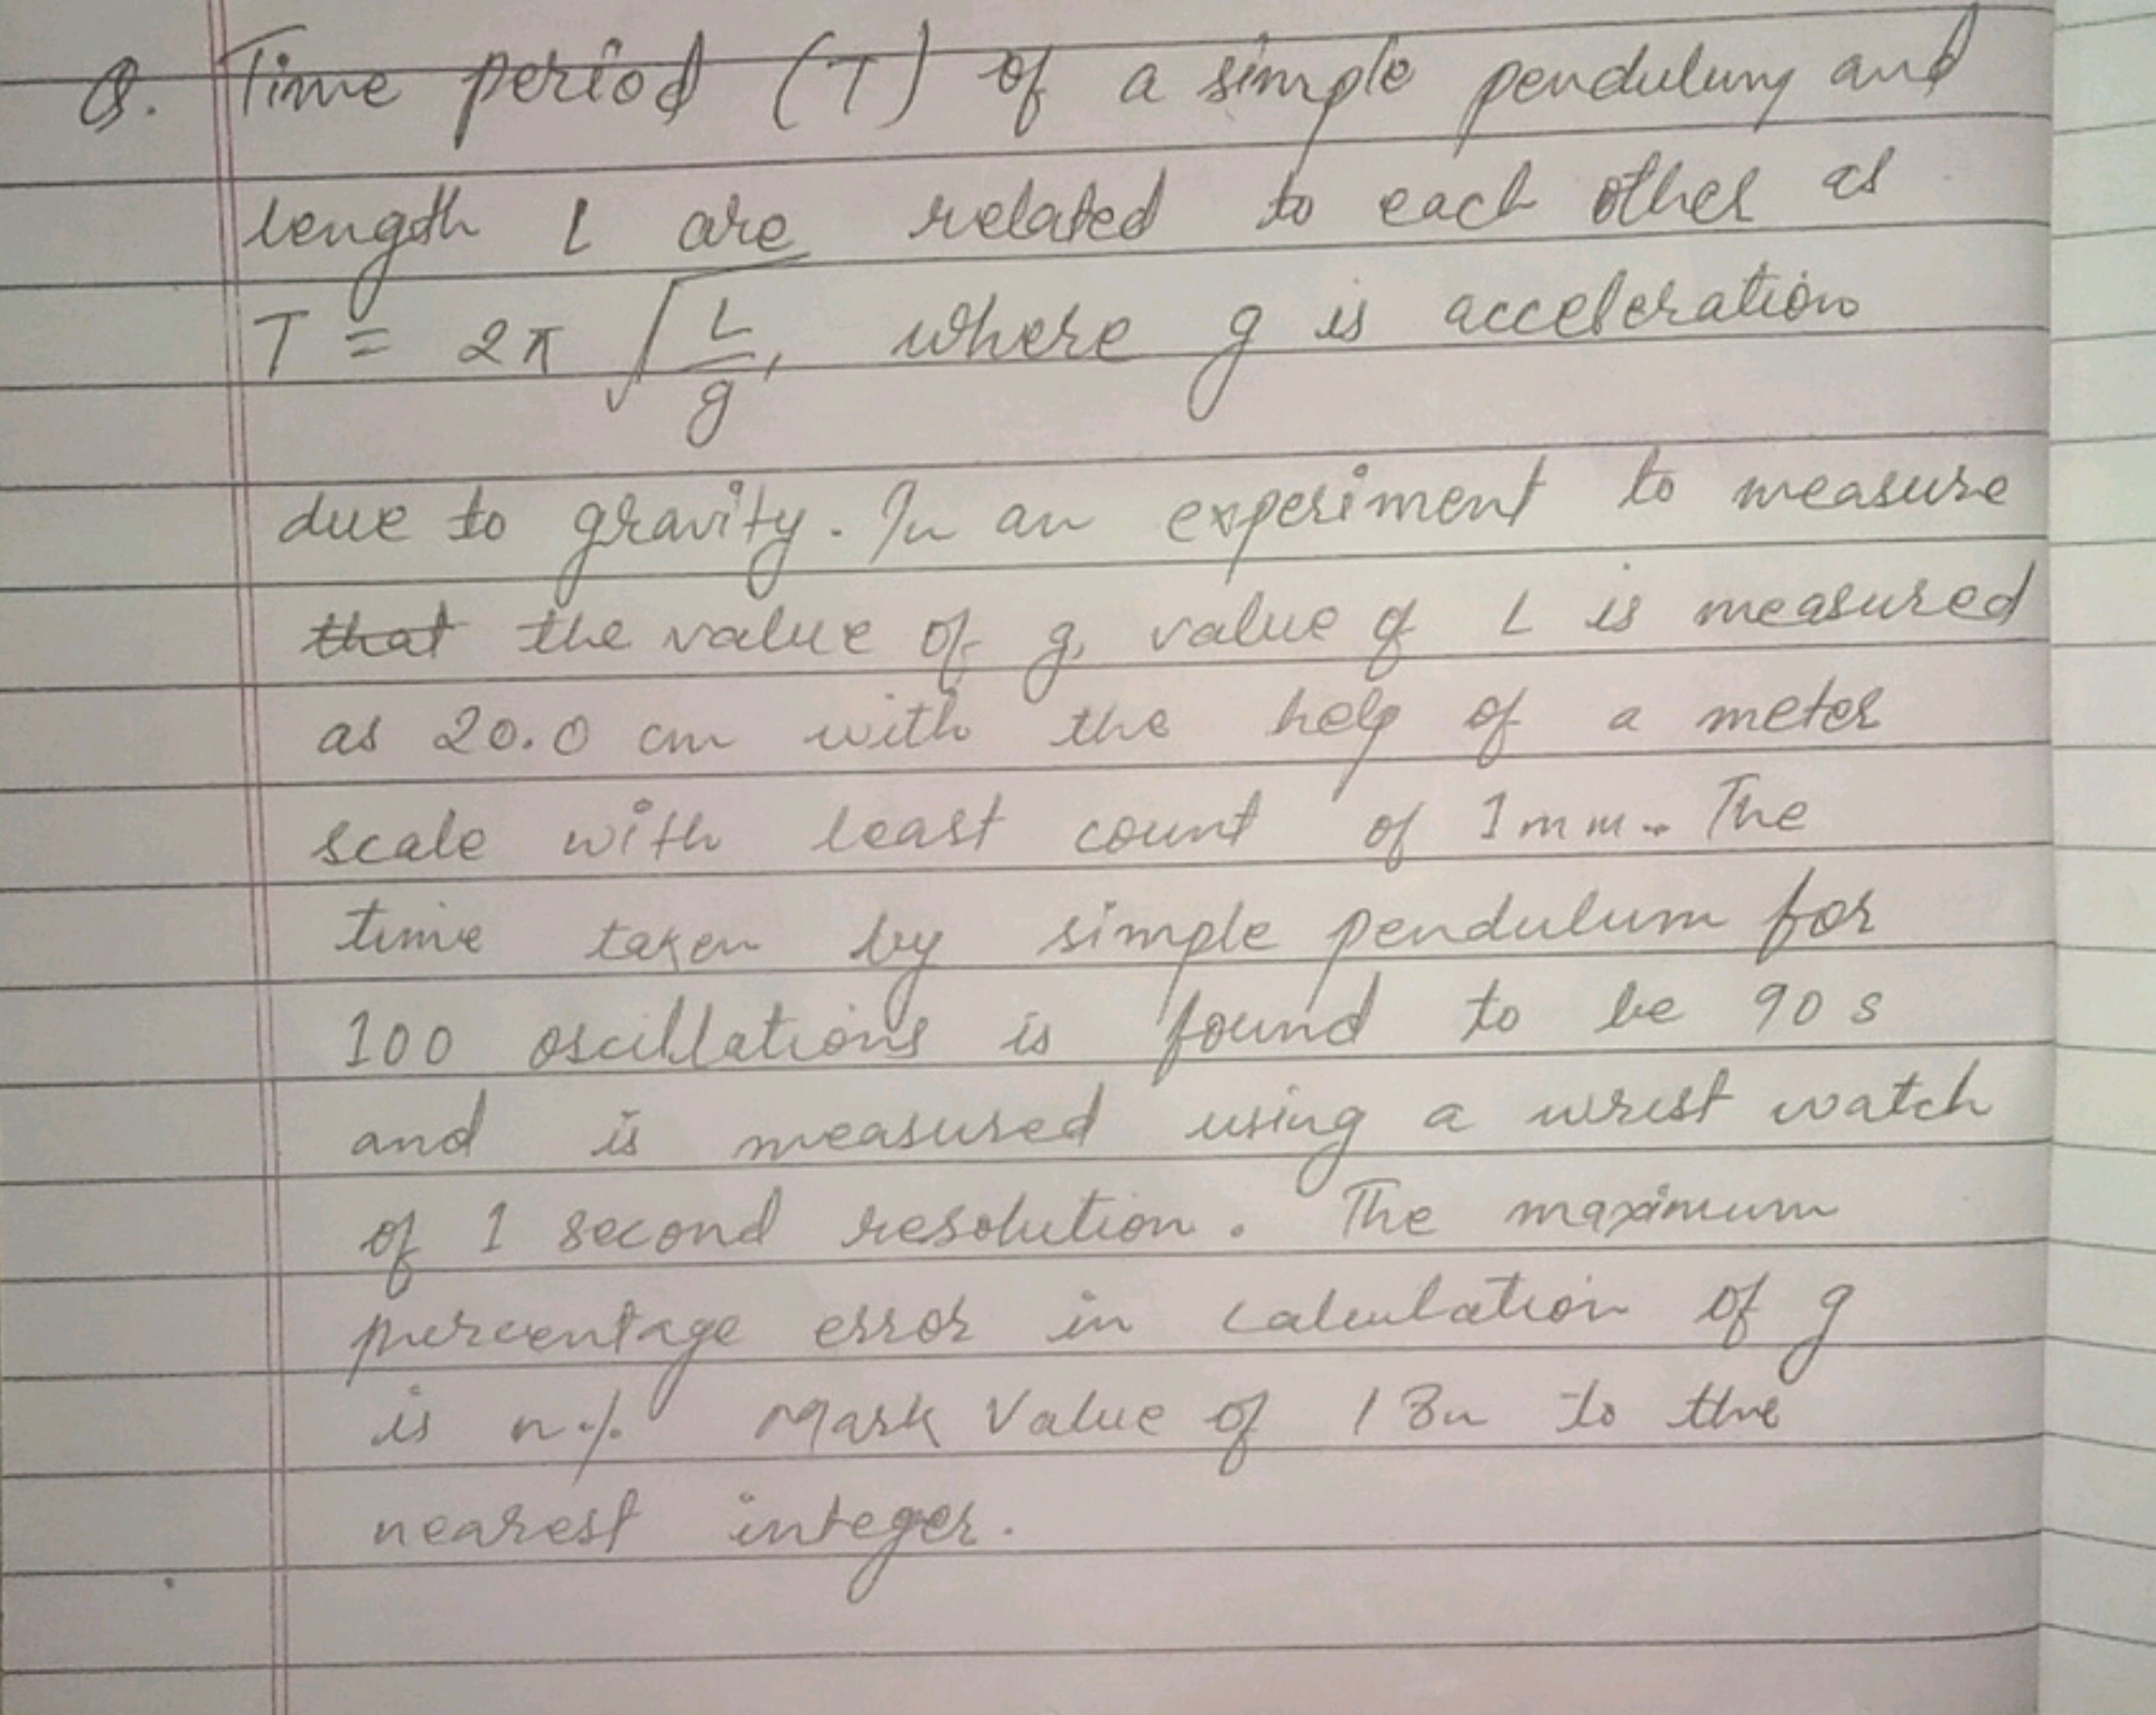 Q. Time period (T) of a simple pendulum and
length L are related to each other as
T = 2π √(L/g), where g is acceleration
due to gravity. In an experiment to measure
that the value of g, value of L is measured
as 20.0 cm with the help of a meter
scale with least count of 1mm. The
time taken by simple pendulum for
100 oscillations is found to be 90 s
and is measured using a wrist watch
of 1 second resolution. The maximum
percentage error in calculation of g
is n%. Mark Value of 18n to the
nearest integer.